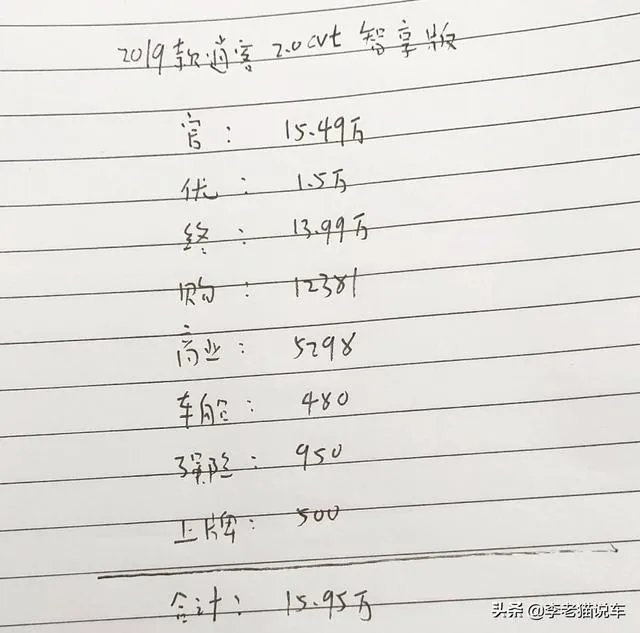 2019款逍客 2.0cvt 智享版
官: 15.49万
优: 1.5万
终: 13.99万
购: 12381
商业: 5298
车船: 480
强险: 950
上牌: 500
合计: 15.95万
头条 @李老猫说车